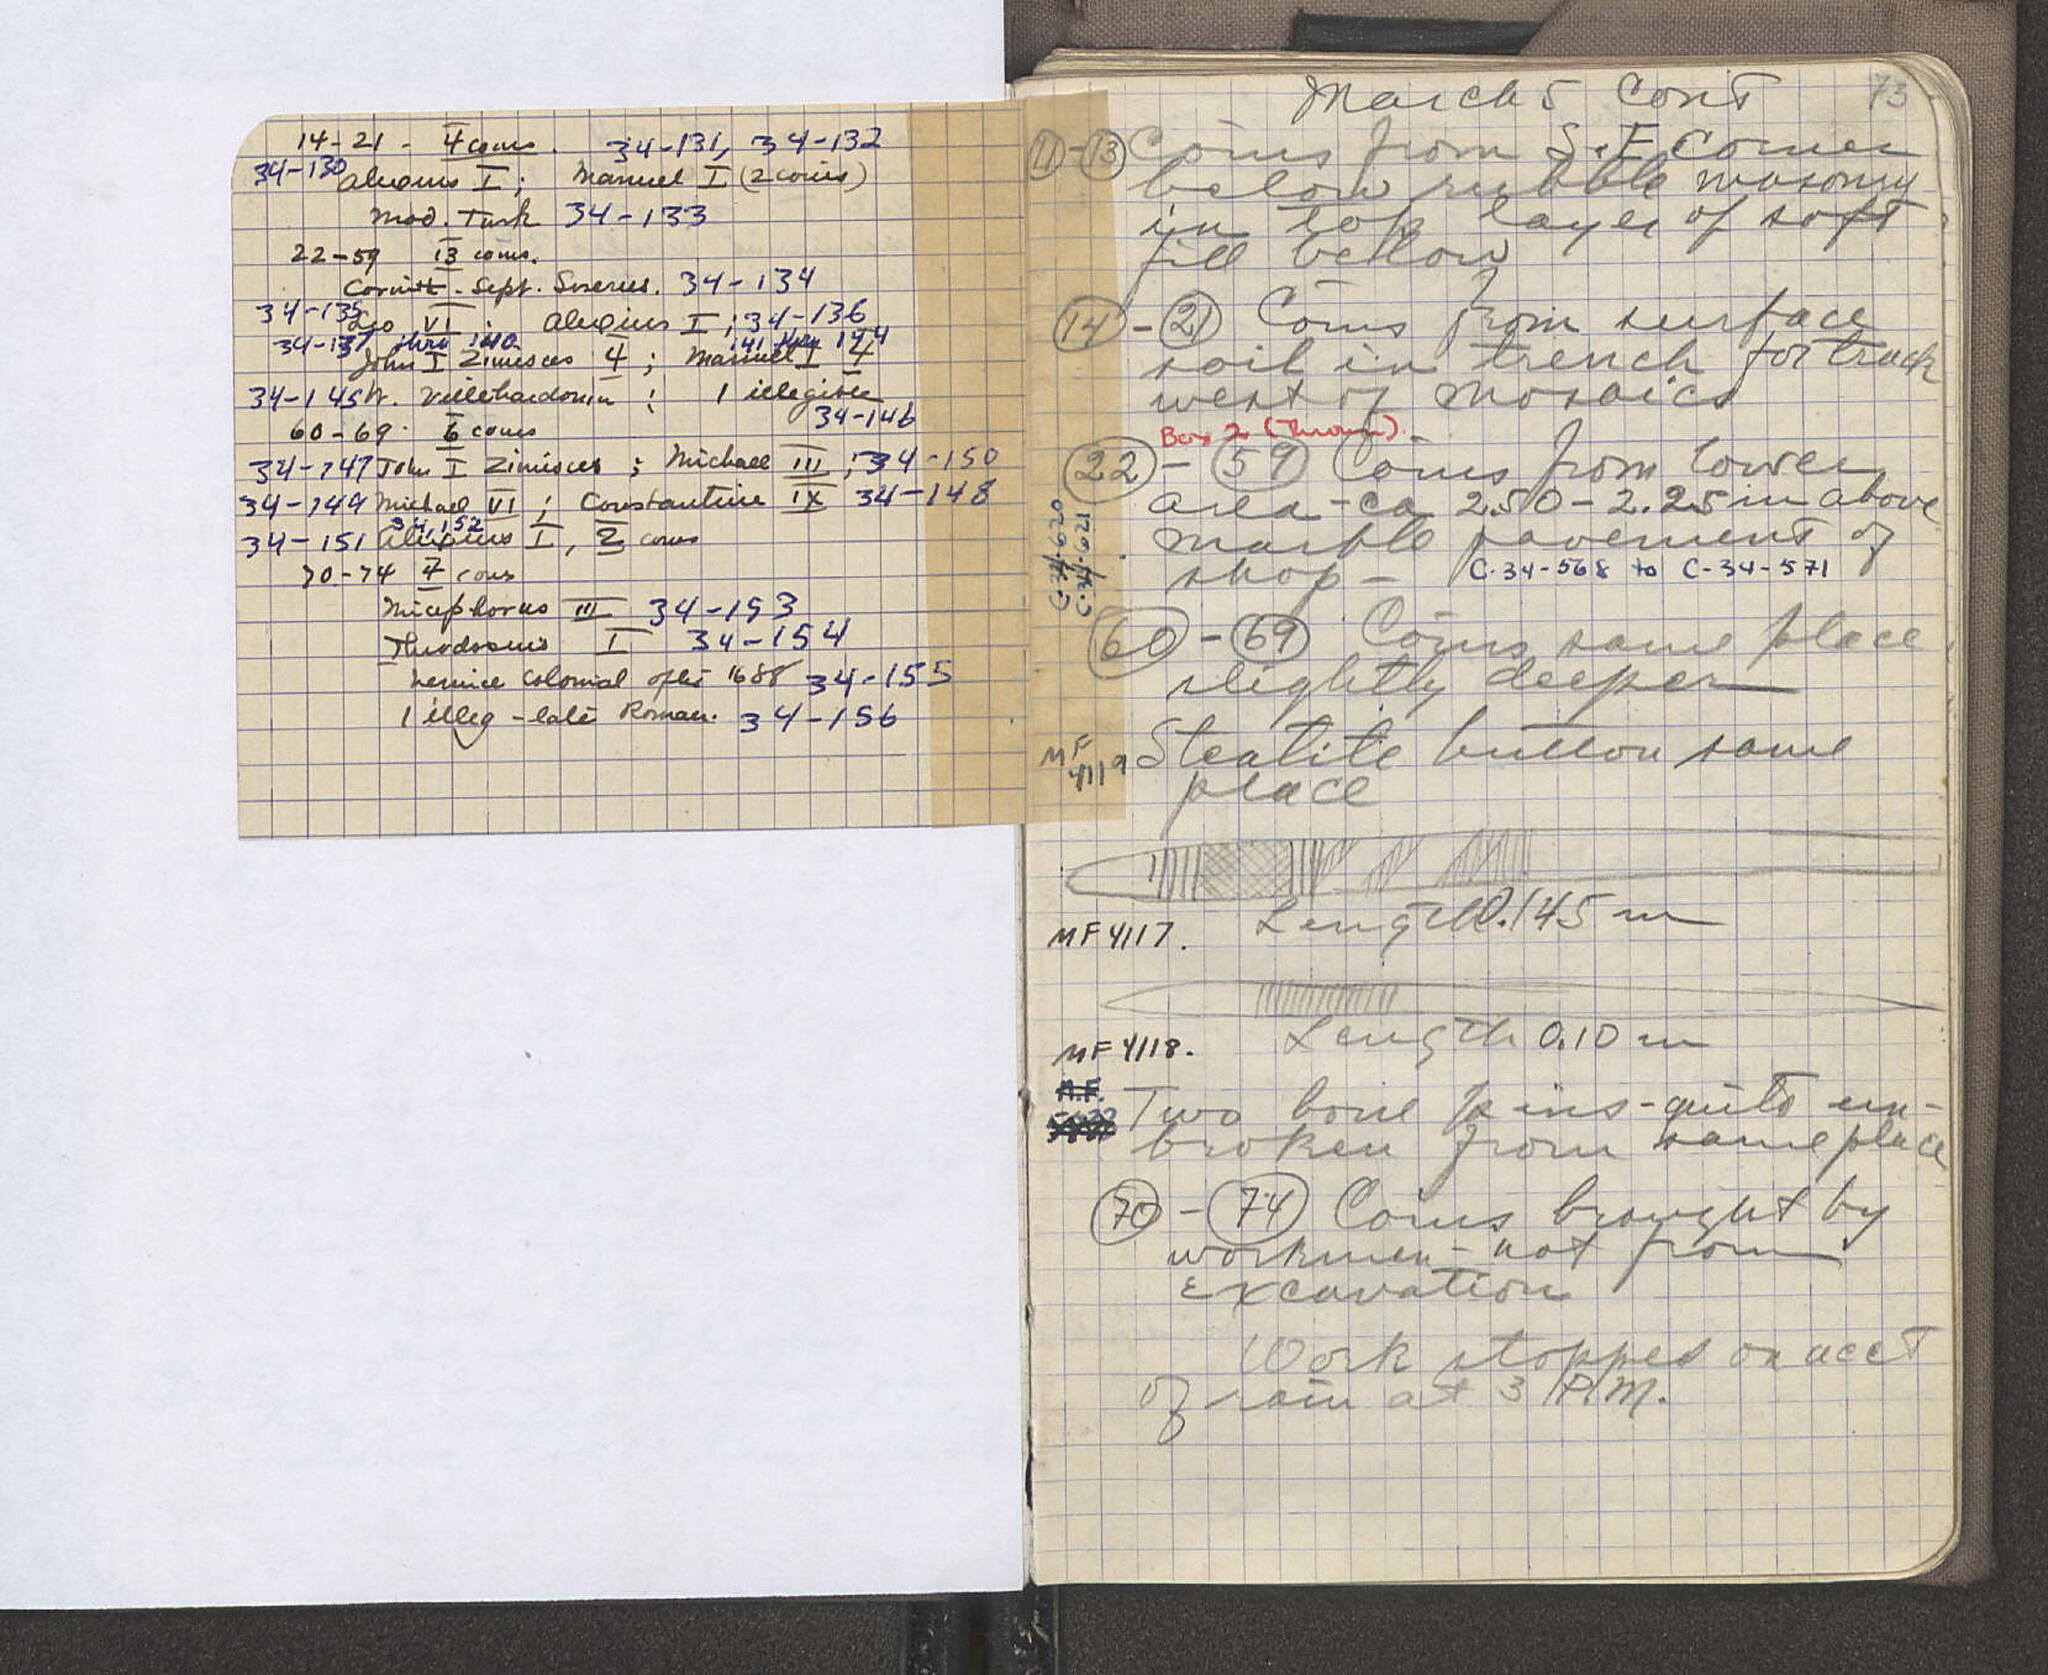 14-21 - 4 coins. 34-131, 34-132
34-130 Alexius I; Manuel I (2 coins)
Mod. Turk 34-133
22-59 13 coins.
Corinth - Sept. Severus. 34-134
34-135 Leo VI; Alexius I; 34-136
34-137 thru 140 141 thru 144
John I Zimisces 4; Manuel I 4
34-145 W. Villehardouin; 1 illegible
34-146
60-69. 6 coins
34-147 John I Zimisces; Michael III; 34-150
34-149 Michael VI; Constantine IX 34-148
34-152
34-151 Alexius I, 2 coins
70-74 4 coins
Nicephorus III 34-153
Theodosius I 34-154
Venice Colonial after 1688 34-155
1 illeg - late Roman. 34-156
March 5 Cont 73
11-13 Coins from S.E corner
below rubble masonry
in top layer of soft
fill below
14-21 Coins from surface
soil in trench for track
west of mosaics
Box 2 (Thrown).
22-59 Coins from lower
area - ca 2.50 - 2.25 m above
marble pavement of
shop - C-34-568 to C-34-571
C-34-620
C-34-621
60-69 Coins same place
slightly deeper
MF 4119 Steatite button same
place
Length 0.145 m
MF 4117.
Length 0.10 m
MF 4118.
M.F.
Two bone pins - quite un-
broken from same place
70-74 Coins brought by
workmen - not from
excavation
Work stopped on acct
of rain at 3 P.M.